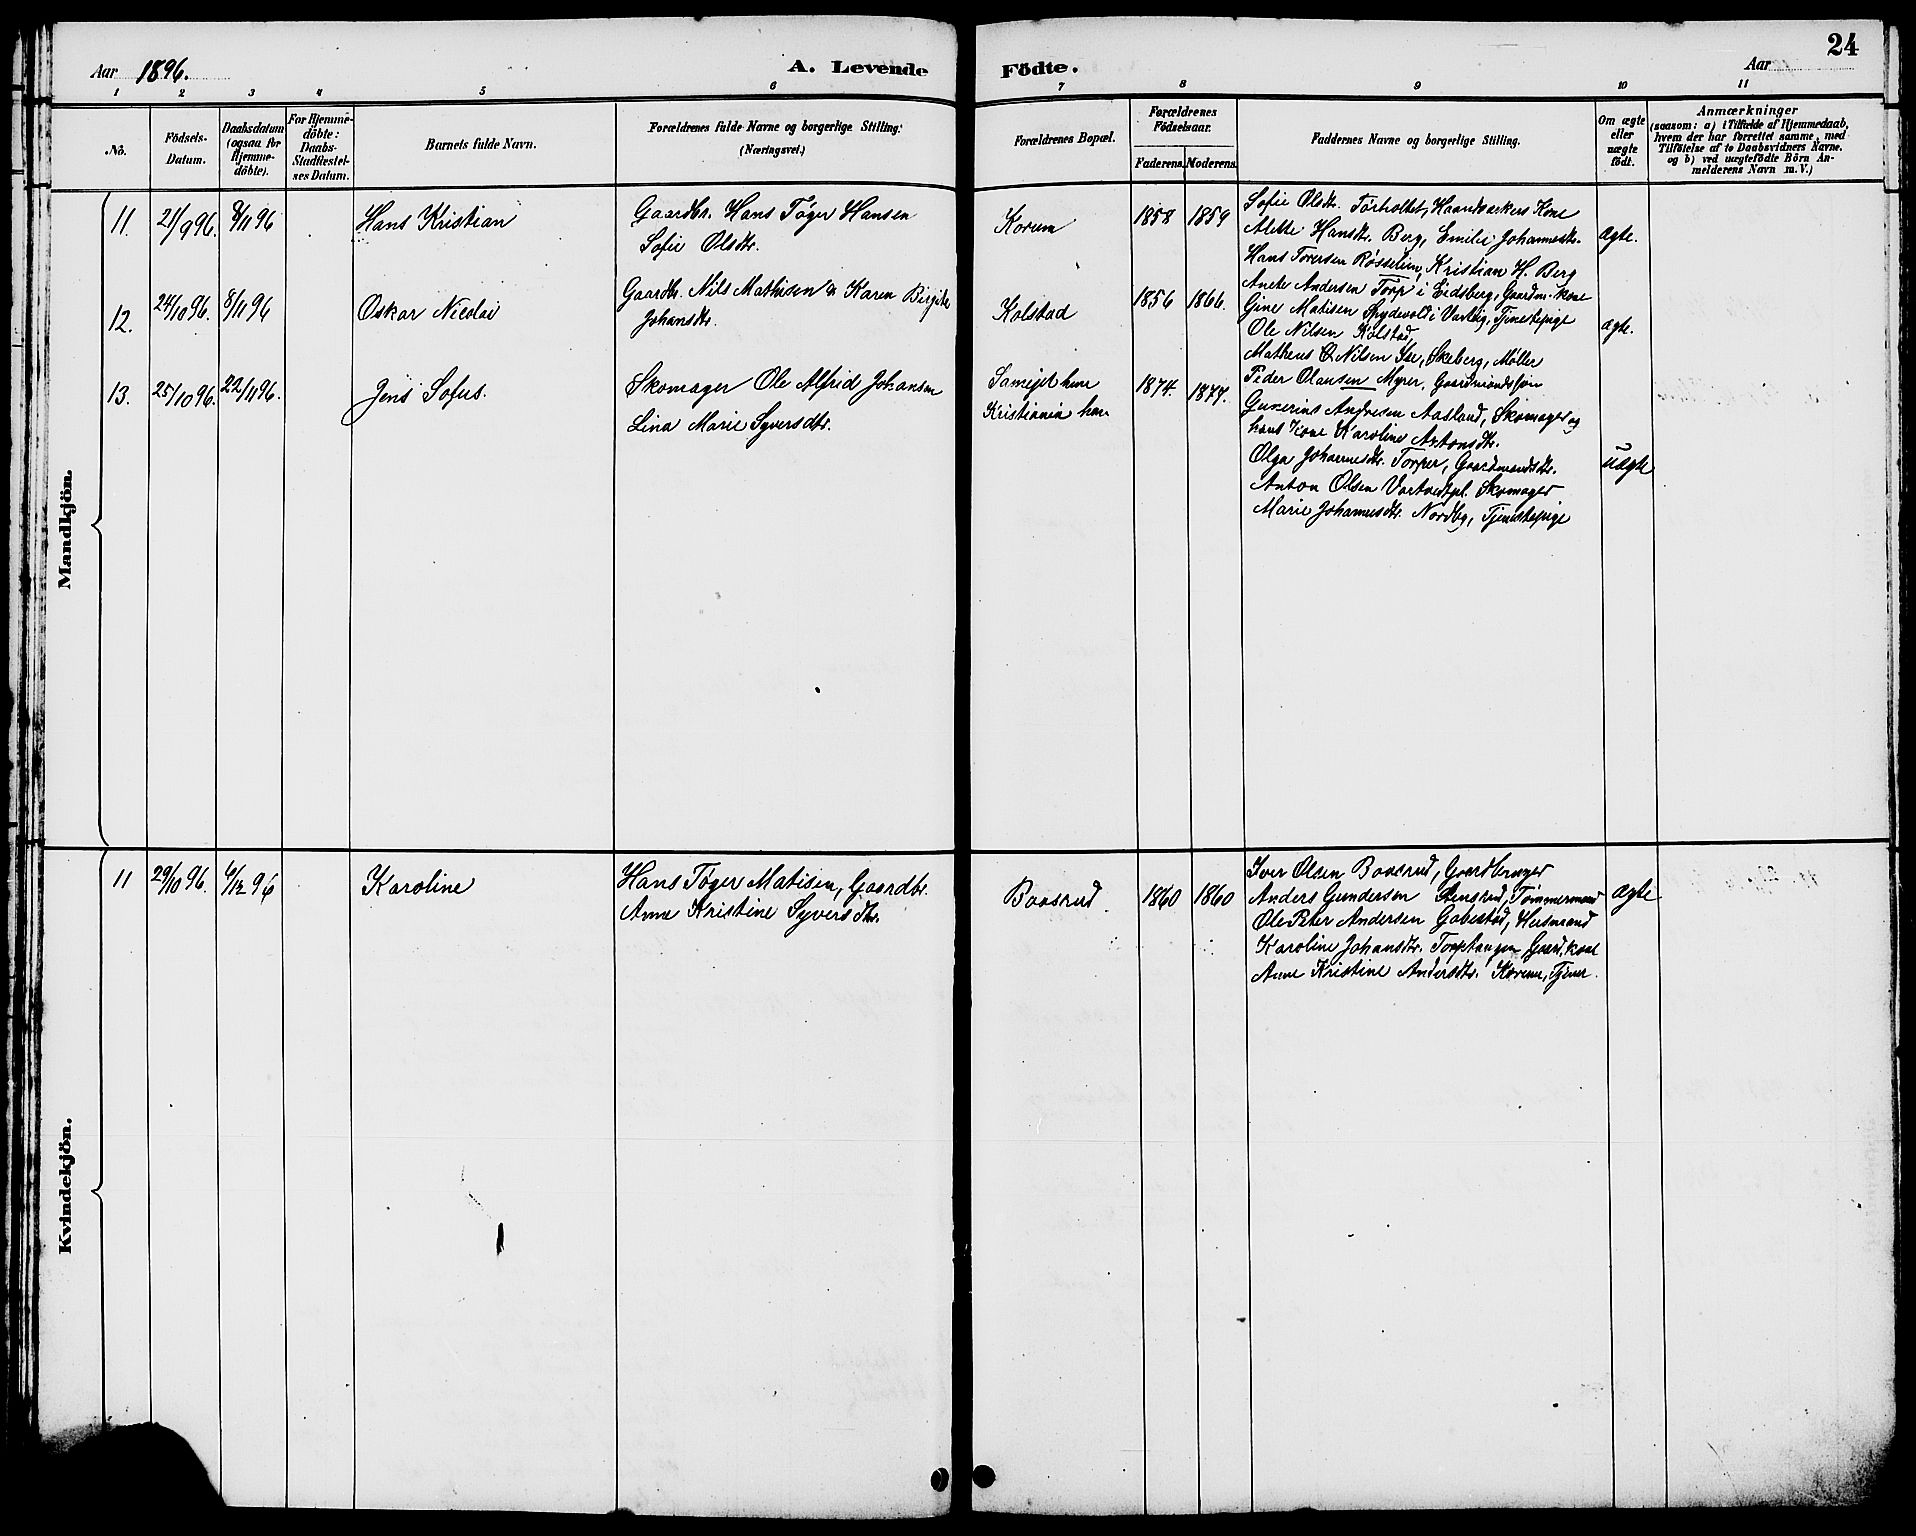 24
Aar 1896.
A. Levende Födte.
Aar
1 2 3 4 5 6 7 8 9 10 11
No.
Födsels-Datum.
Daabsdatum (ogsaa for Hjemme-döbte).
For Hjemme-döbte: Daabs-Stadfæstel-ses Datum.
Barnets fulde Navn.
Forældrenes fulde Navne og borgerlige Stilling. (Næringsvei.)
Forældrenes Bopæl.
Forældrenes Födselsaar.
Faderens. Moderens.
Faddernes Navne og borgerlige Stilling.
Om ægte eller uægte födt.
Anmærkninger
(saasom: a) i Tilfælde af Hjemmedaab,
hvem der har forrettet samme, med
Tilföielse af to Daabsvidners Navne.
og b) ved uægtefödte Börn An-
melderens Navn m.V.)
Mandkjön.
11. 21/9 96. 8/11 96 Hans Kristian
Gaardbr. Hans Tøger Hansen
Sofie Olsdtr.
Korum 1858 1859
Sofie Olsdtr. Torholtet, Haandværkers Kone
Alette Hansdtr. Berg, Emilie Johannesdtr.
Hans Toversen Røsselien, Kristian H. Berg
ægte.
12. 24/10 96. 8/11 96 Oskar Nicolai
Gaardbr. Nils Mathisen & Karen Birgitte
Johansdtr.
Kolstad 1856 1866.
Anete Andersen Torp i Eidsberg, Gaardm. kone
Gine Matisen Spydevold i Varteig, Tjenestepige
Ole Nilsen Kolstad,
Matheus Nilsen Ise, Skeberg, Møller
ægte.
13. 25/10 96. 22/11 96. Jens Sofus.
Skomager Ole Alfrid Johansen
Lina Marie Syversdtr.
Kristiania 1874. 1877.
Peder Olausen Myrer, Gaardmandssøn
Gunerius Andresen Aasland, Skomager og
hans Kone Karoline Antonsdtr.
Olga Johannesdtr. Torper, Gaardmandsdtr.
Anton Olsen Skomager
Marie Johannesdtr. Nordby, Tjenestepige
uægte
Kvindekjön.
11 29/10 96. 6/12 96 Karoline
Hans Tøger Matisen, Gaardbr.
Anne Kristine Syversdtr.
Baasrud 1860 1860
Iver Olsen Baasrud, Gaardbruger
Anders Gundersen Stensrud, Tømmermand
Ole Peter Andersen Gabestad, Husmand
Karoline Johansdtr. Torptangen, Gaard.kone
Anne Kristine Andersdtr. Korum, Tjener.
ægte